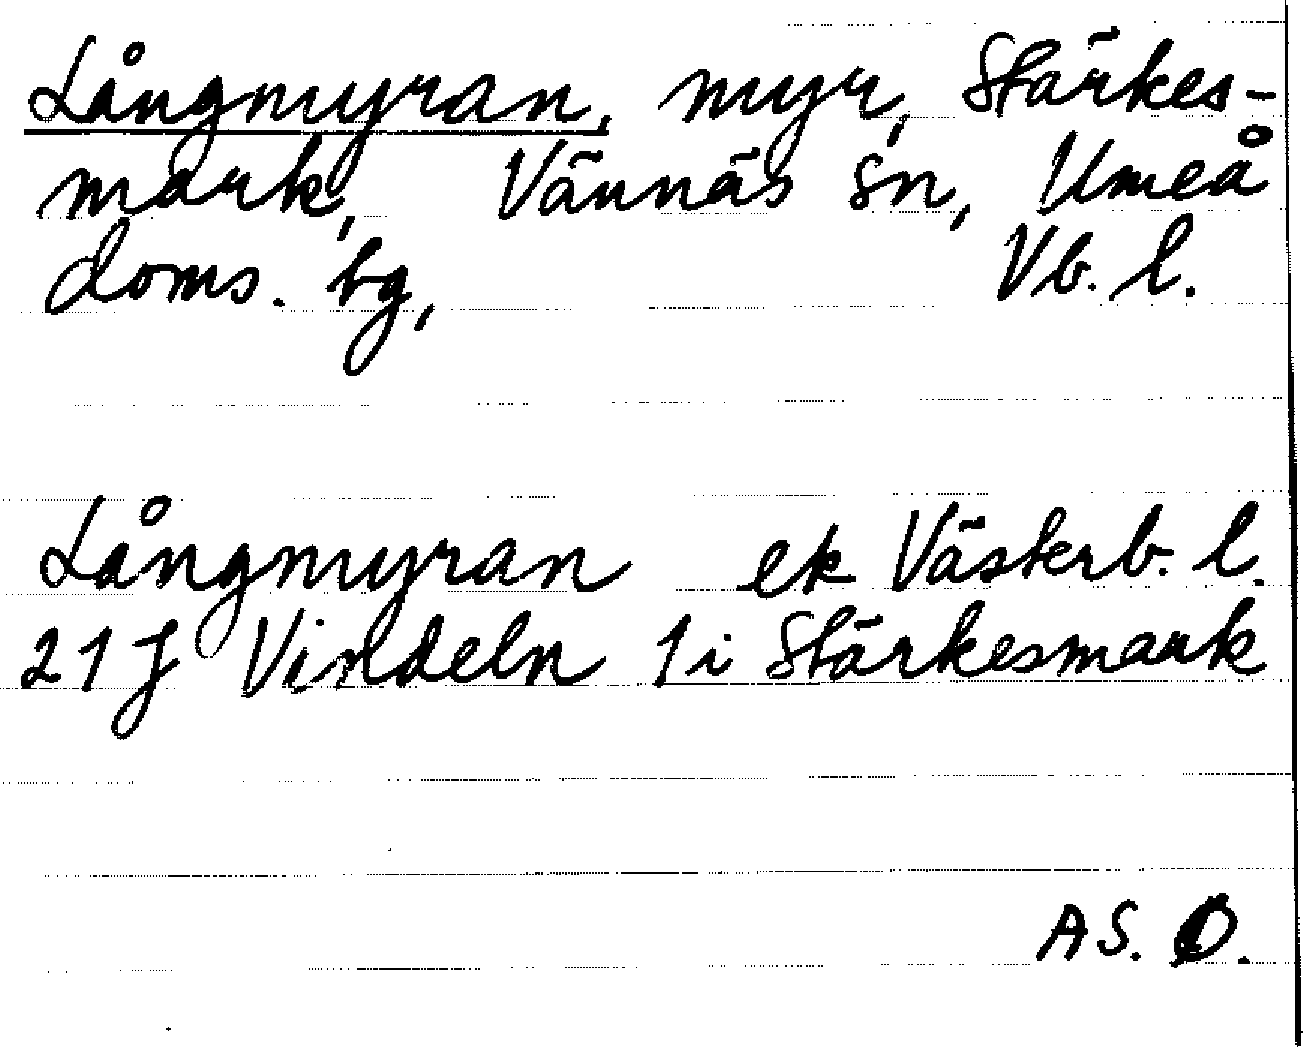 Långmyran, myr, Stärkes-
mark, Vännäs sn, Umeå
doms. bg, Vb. l.
Långmyran ek Västerb. l.
21 J Vindeln 1 i Stärkesmark
AS. O.